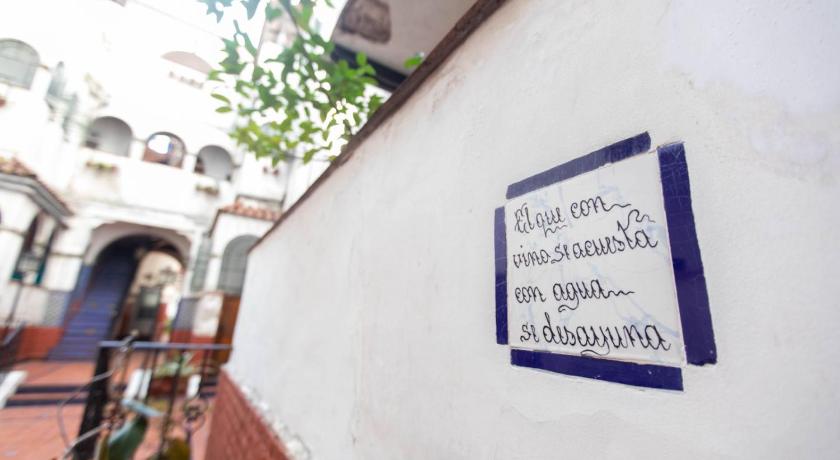 El que con
vino se acuesta
con agua
se desayuna